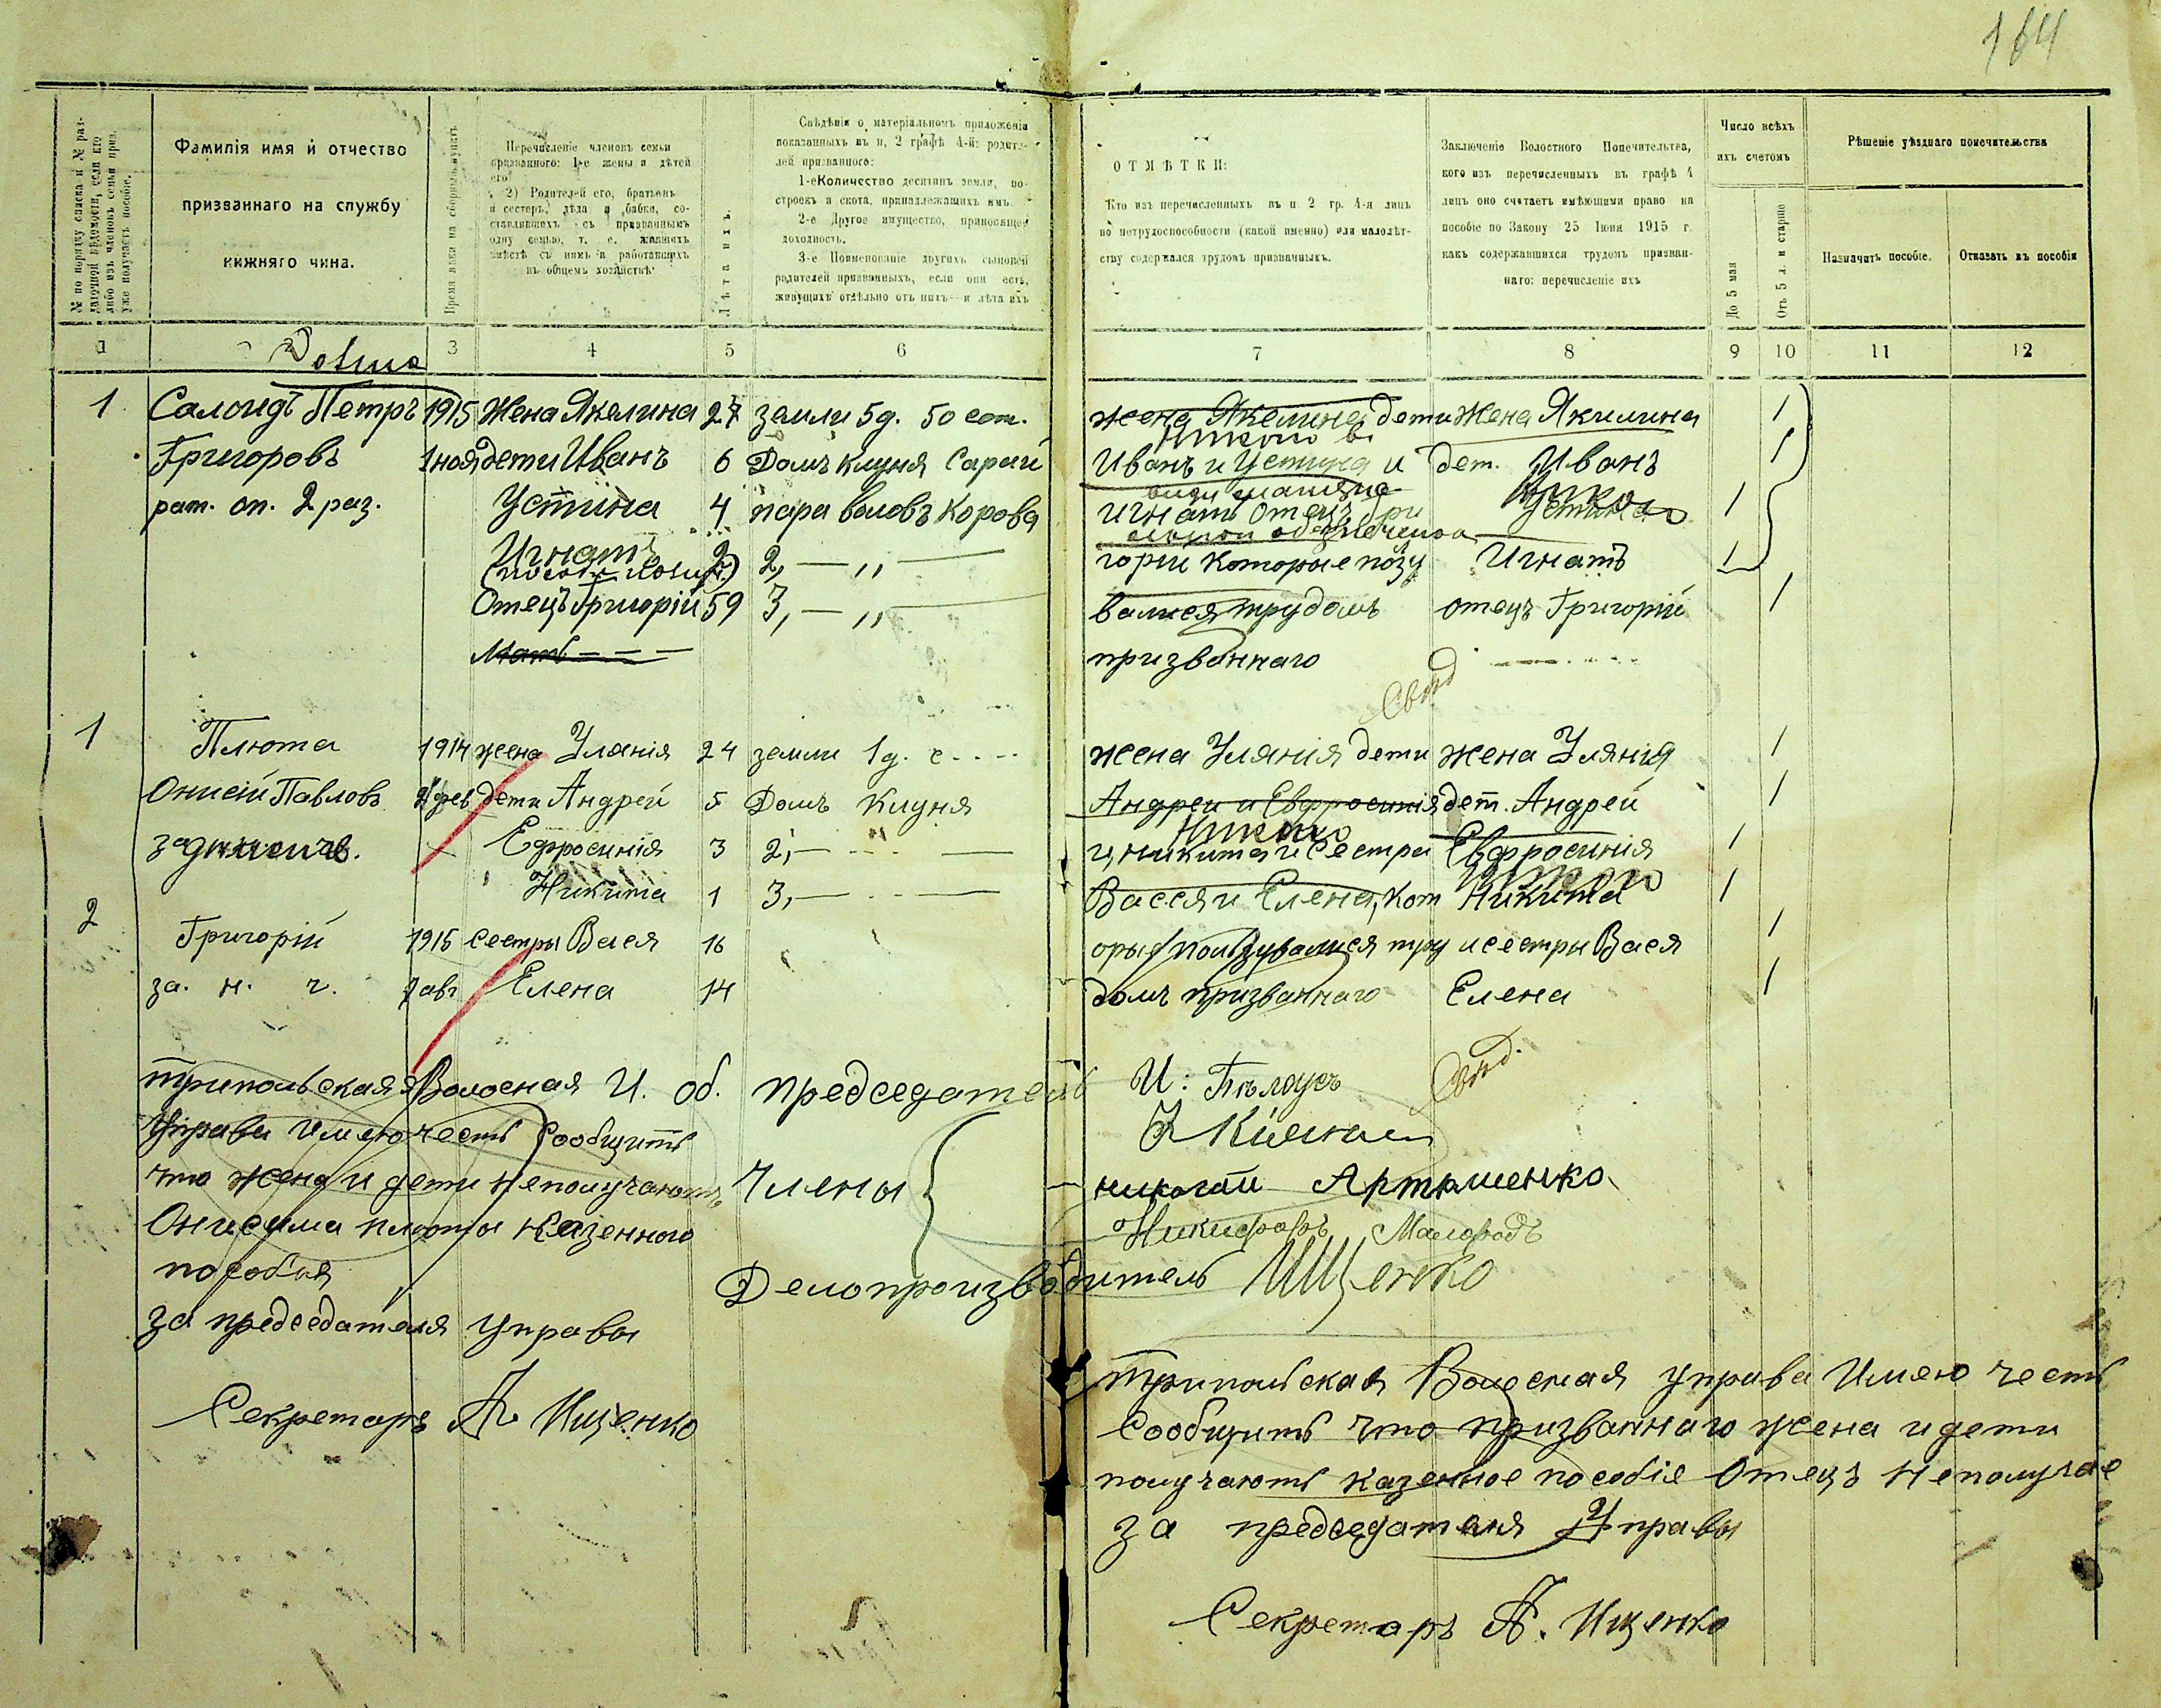 164
№ по порядку списка и № раз-
даточной вѣдомости, если кто
либо изъ членовъ семьи приз.
уже получаетъ пособіе.
Фамилія имя и отчество
призваннаго на службу
нижняго чина.
Время явки на сборный пунктъ
Перечисленіе членовъ семьи
призваннаго: 1-е жены и дѣтей
его
2) Родителей его, братьевъ
и сестеръ, дѣда и бабки, со-
ставлявшихъ съ призваннымъ
одну семью, т. е. жившихъ
вмѣстѣ съ нимъ и работавшихъ
въ общемъ хозяйствѣ
Лѣта ихъ.
Свѣдѣнія о матеріальномъ приложеніи
показанныхъ въ п, 2 графѣ 4-й: родите-
лей призваннаго:
1-е Количество десятинъ земли, по-
строекъ и скота, принадлежащихъ имъ.
2-е Другое имущество, приносящее
доходность.
3-е Поименованіе другихъ сыновей
родителей призванныхъ, если они есть,
живущихъ отдѣльно отъ нихъ—и лѣта ихъ
ОТМѢТКИ:
Кто изъ перечисленныхъ въ п. 2 гр. 4-я лицъ
по нетрудоспособности (какой именно) или малолѣт-
ству содержался трудомъ призванныхъ.
Заключеніе Волостного Попечительтва,
кого изъ перечисленныхъ въ графѣ 4
лицъ оно считаетъ имѣющими право на
пособіе по Закону 25 Іюня 1915 г.
какъ содержавшихся трудомъ призван-
наго: перечисленіе ихъ
Число всѣхъ
ихъ счетомъ
До 5 мая
Отъ 5 л. и старше
Рѣшеніе уѣзднаго попечительства
Назначить пособіе.
Отказать въ пособіи
1 3 4 5 6 7 8 9 10 11 12
1 Салоидъ Петръ 1915 Жена Якелина 27 земли 5д. 50 сот. жена Якелина дети Жена Якилина 1
Григоровъ 1ноя дети Иванъ 6 Домъ клуня Сарай Иванъ и Устина и дет. Иванъ 1
рат. оп. 2 раз. Устина 4 пара воловъ Корова Игнатъ отецъ Гри Устина 1
Игнатъ 2 2, — ,, — горій которые позу Игнатъ 1
Отецъ Григорій 59 3, — ,, — валися трудомъ отецъ Григорій 1
Мать — — — призваннаго
1 Плюта 1914 жена Улянія 24 земли 1д. с. жена Улянія дети жена Улянія 1
Онисій Павловъ дети Андрей 5 Домъ Клуня Андрей и Евфросинія дет. Андрей 1
Ефросинія 3 2,— — и, никита и Сестри Евфросинія 1
Никита 1 3,— — Васся и Елена, кот Никита 1
2 Григорій 1915 Сестры Вася 16 орыя ползувалися тру и сестры Вася 1
за. н. ч. 1 авг Елена 14 домъ призваннаго Елена 1
Трипольская Волосная И. об. председатель И: Бѣлоусъ
Управа Имею честь Сообщить
что жена и дети неполучаютъ Члены Николай Артюшенко
Онисима плюты Казенного Никифоръ Малородъ
пособия Делопроизводитель Ищенко
за председателя Управы
Секретарь А. Ищенко
Трипольская Волосная управа Имею честь
Сообщить что призваннаго жена и дети
получають казенное пособіе Отецъ неполучае
за председателя Управы
Секретарь А. Ищенко